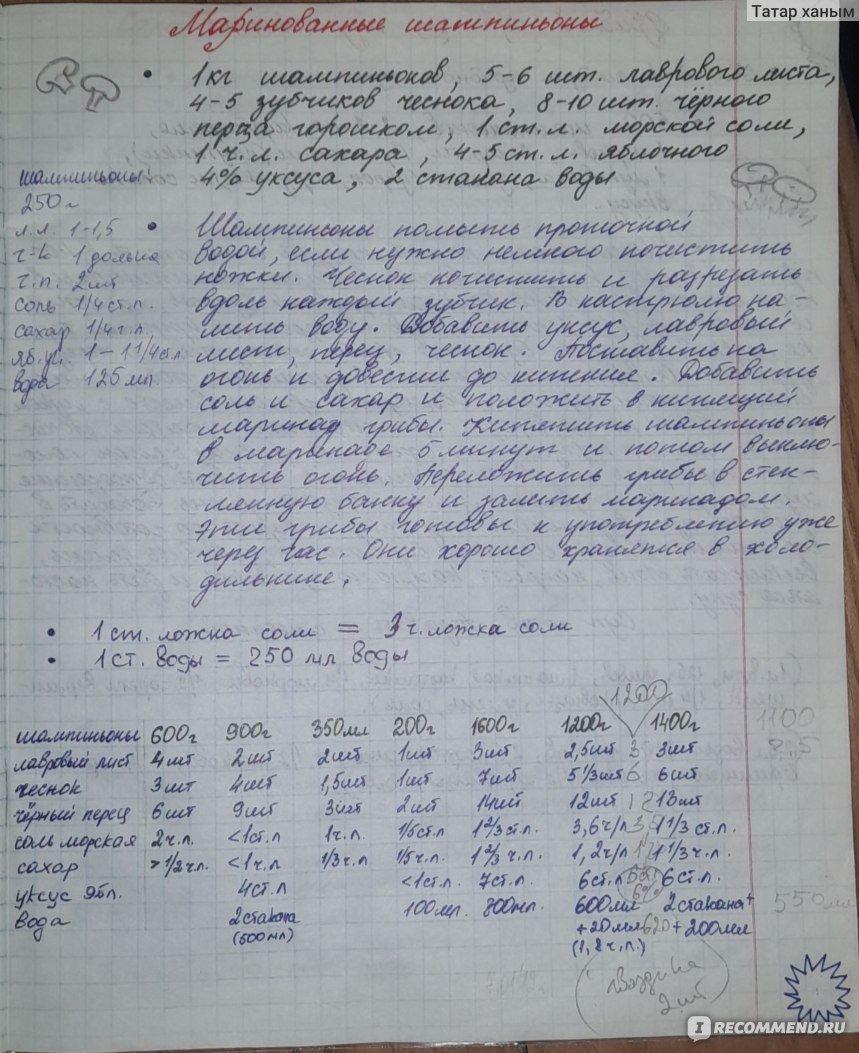 Татар ханым
Маринованные шампиньоны
• 1кг шампиньонов, 5-6 шт. лаврового листа,
4-5 зубчиков чеснока, 8-10 шт. чёрного
перца горошком, 1 ст.л. морской соли,
1 ч.л. сахара, 4-5 ст.л. яблочного
4% уксуса, 2 стакана воды
шампиньоны
250г
л.л. 1-1,5
ч-к 1 долька
ч.п. 2шт
соль 1/4 ст.л.
сахар 1/4 ч.л.
яб.ук. 1-1 1/4 ст.л.
вода 125 мл
• Шампиньоны помыть проточной
водой, если нужно немного почистить
ножки. Чеснок почистить и разрезать
вдоль каждый зубчик. В кастрюлю на-
лить воду. Добавить уксус, лавровый
лист, перец, чеснок. Поставить на
огонь и довести до кипения. Добавить
соль и сахар и положить в кипящий
маринад грибы. Кипятить шампиньоны
в маринаде 5 минут и потом выклю-
чить огонь. Переложить грибы в стек-
лянную банку и залить маринадом.
Эти грибы готовы к употреблению уже
через час. Они хорошо хранятся в холо-
дильнике.
• 1 ст. ложка соли = 3 ч. ложка соли
• 1 ст. воды = 250 мл воды
1200
шампиньоны 600г 900г 350мл 200г 1600г 1200г 1400г 1100
лавровый лист 4шт 2шт 2шт 1шт 3шт 2,5шт 3 3шт
чеснок 3шт 4шт 1,5шт 1шт 7шт 5 1/3шт 6 6шт
чёрный перец 6шт 9шт 3шт 2шт 14шт 12шт 12 13шт
соль морская 2ч.л. <1ст.л 1ч.л. 1/5ст.л 1 2/3ст.л. 3,6ч/л 1 1/3 ст.л.
сахар >1/2ч.л. <1ч.л 1/3ч.л 1/5ч.л. 1 2/3 ч.л. 1,2ч/л 1 1/3ч.л.
уксус ябл. 4ст.л <1ст.л. 7ст.л. 6ст.л 6ст.л.
вода 2стакана 100мл. 800мл. 600мл 2стакана+ 550мл
(500мл) +20мл 620 +200мл
(1,2ч.л.)
гвоздика
2шт
IRECOMMEND.RU